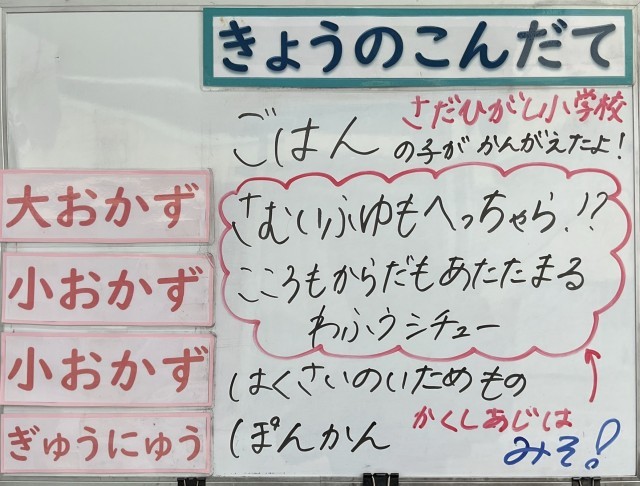 きょうのこんだて
ごはん
さだひがし小学校
の子が かんがえたよ!
大おかず
さむいふゆもへっちゃら!?
こころもからだもあたたまる
わふうシチュー
小おかず
はくさいのいためもの
小おかず
ぽんかん
ぎゅうにゅう
かくしあじは
みそ!